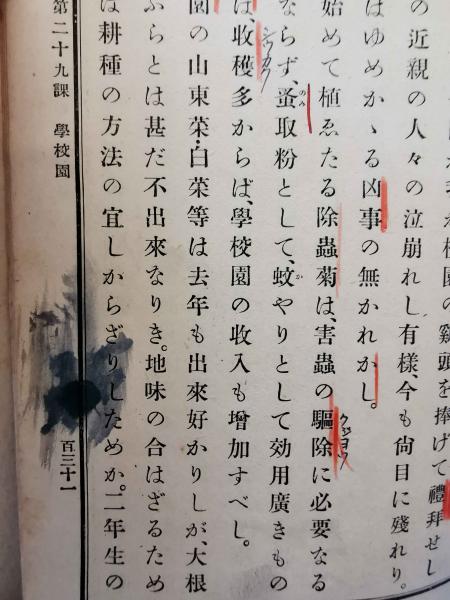 校園の鷄頭を捧げて禮拜せし
の近親の人々の泣崩れし有樣、今も尙目に殘れり。
はゆめかゝる凶事の無かれかし。
始めて植ゑたる除蟲菊は、害蟲の驅除に必要なる
ならず、蚤取粉として、蚊やりとして効用廣きもの
のみ
か
は、收穫多からば、學校園の收入も增加すべし。
シウカク
園の山東菜・白菜等は去年も出來好かりしが、大根
ふらとは甚だ不出來なりき。地味の合はざるため
は耕種の方法の宜しからざりしためか。二年生の
第二十九課 學校園
百三十一